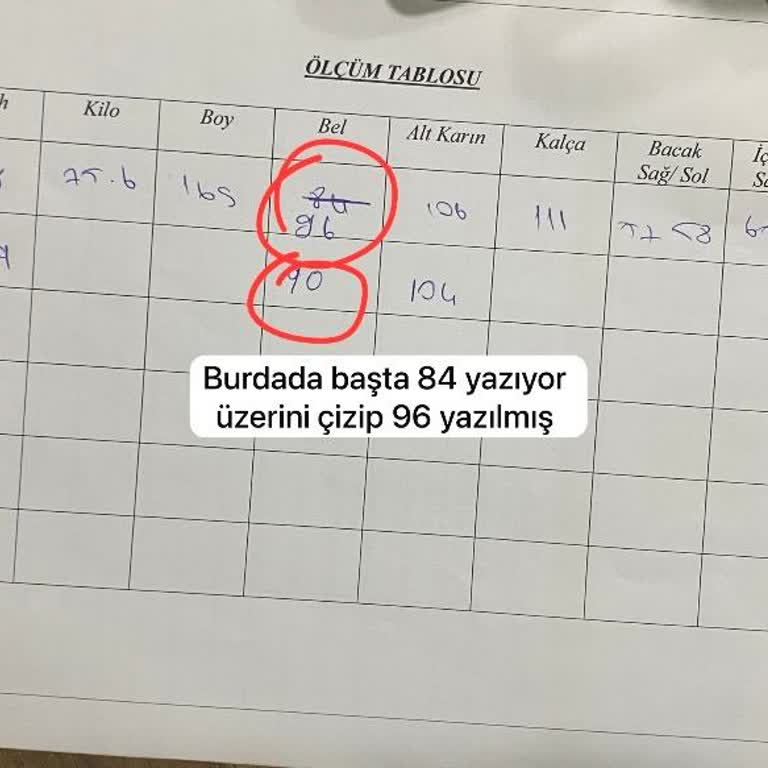 ÖLÇÜM TABLOSU
Kilo Boy Bel Alt Karın Kalça Bacak
Sağ/ Sol
75.6 165 84 106 111
96
90 104
Burdada başta 84 yazıyor
üzerini çizip 96 yazılmış